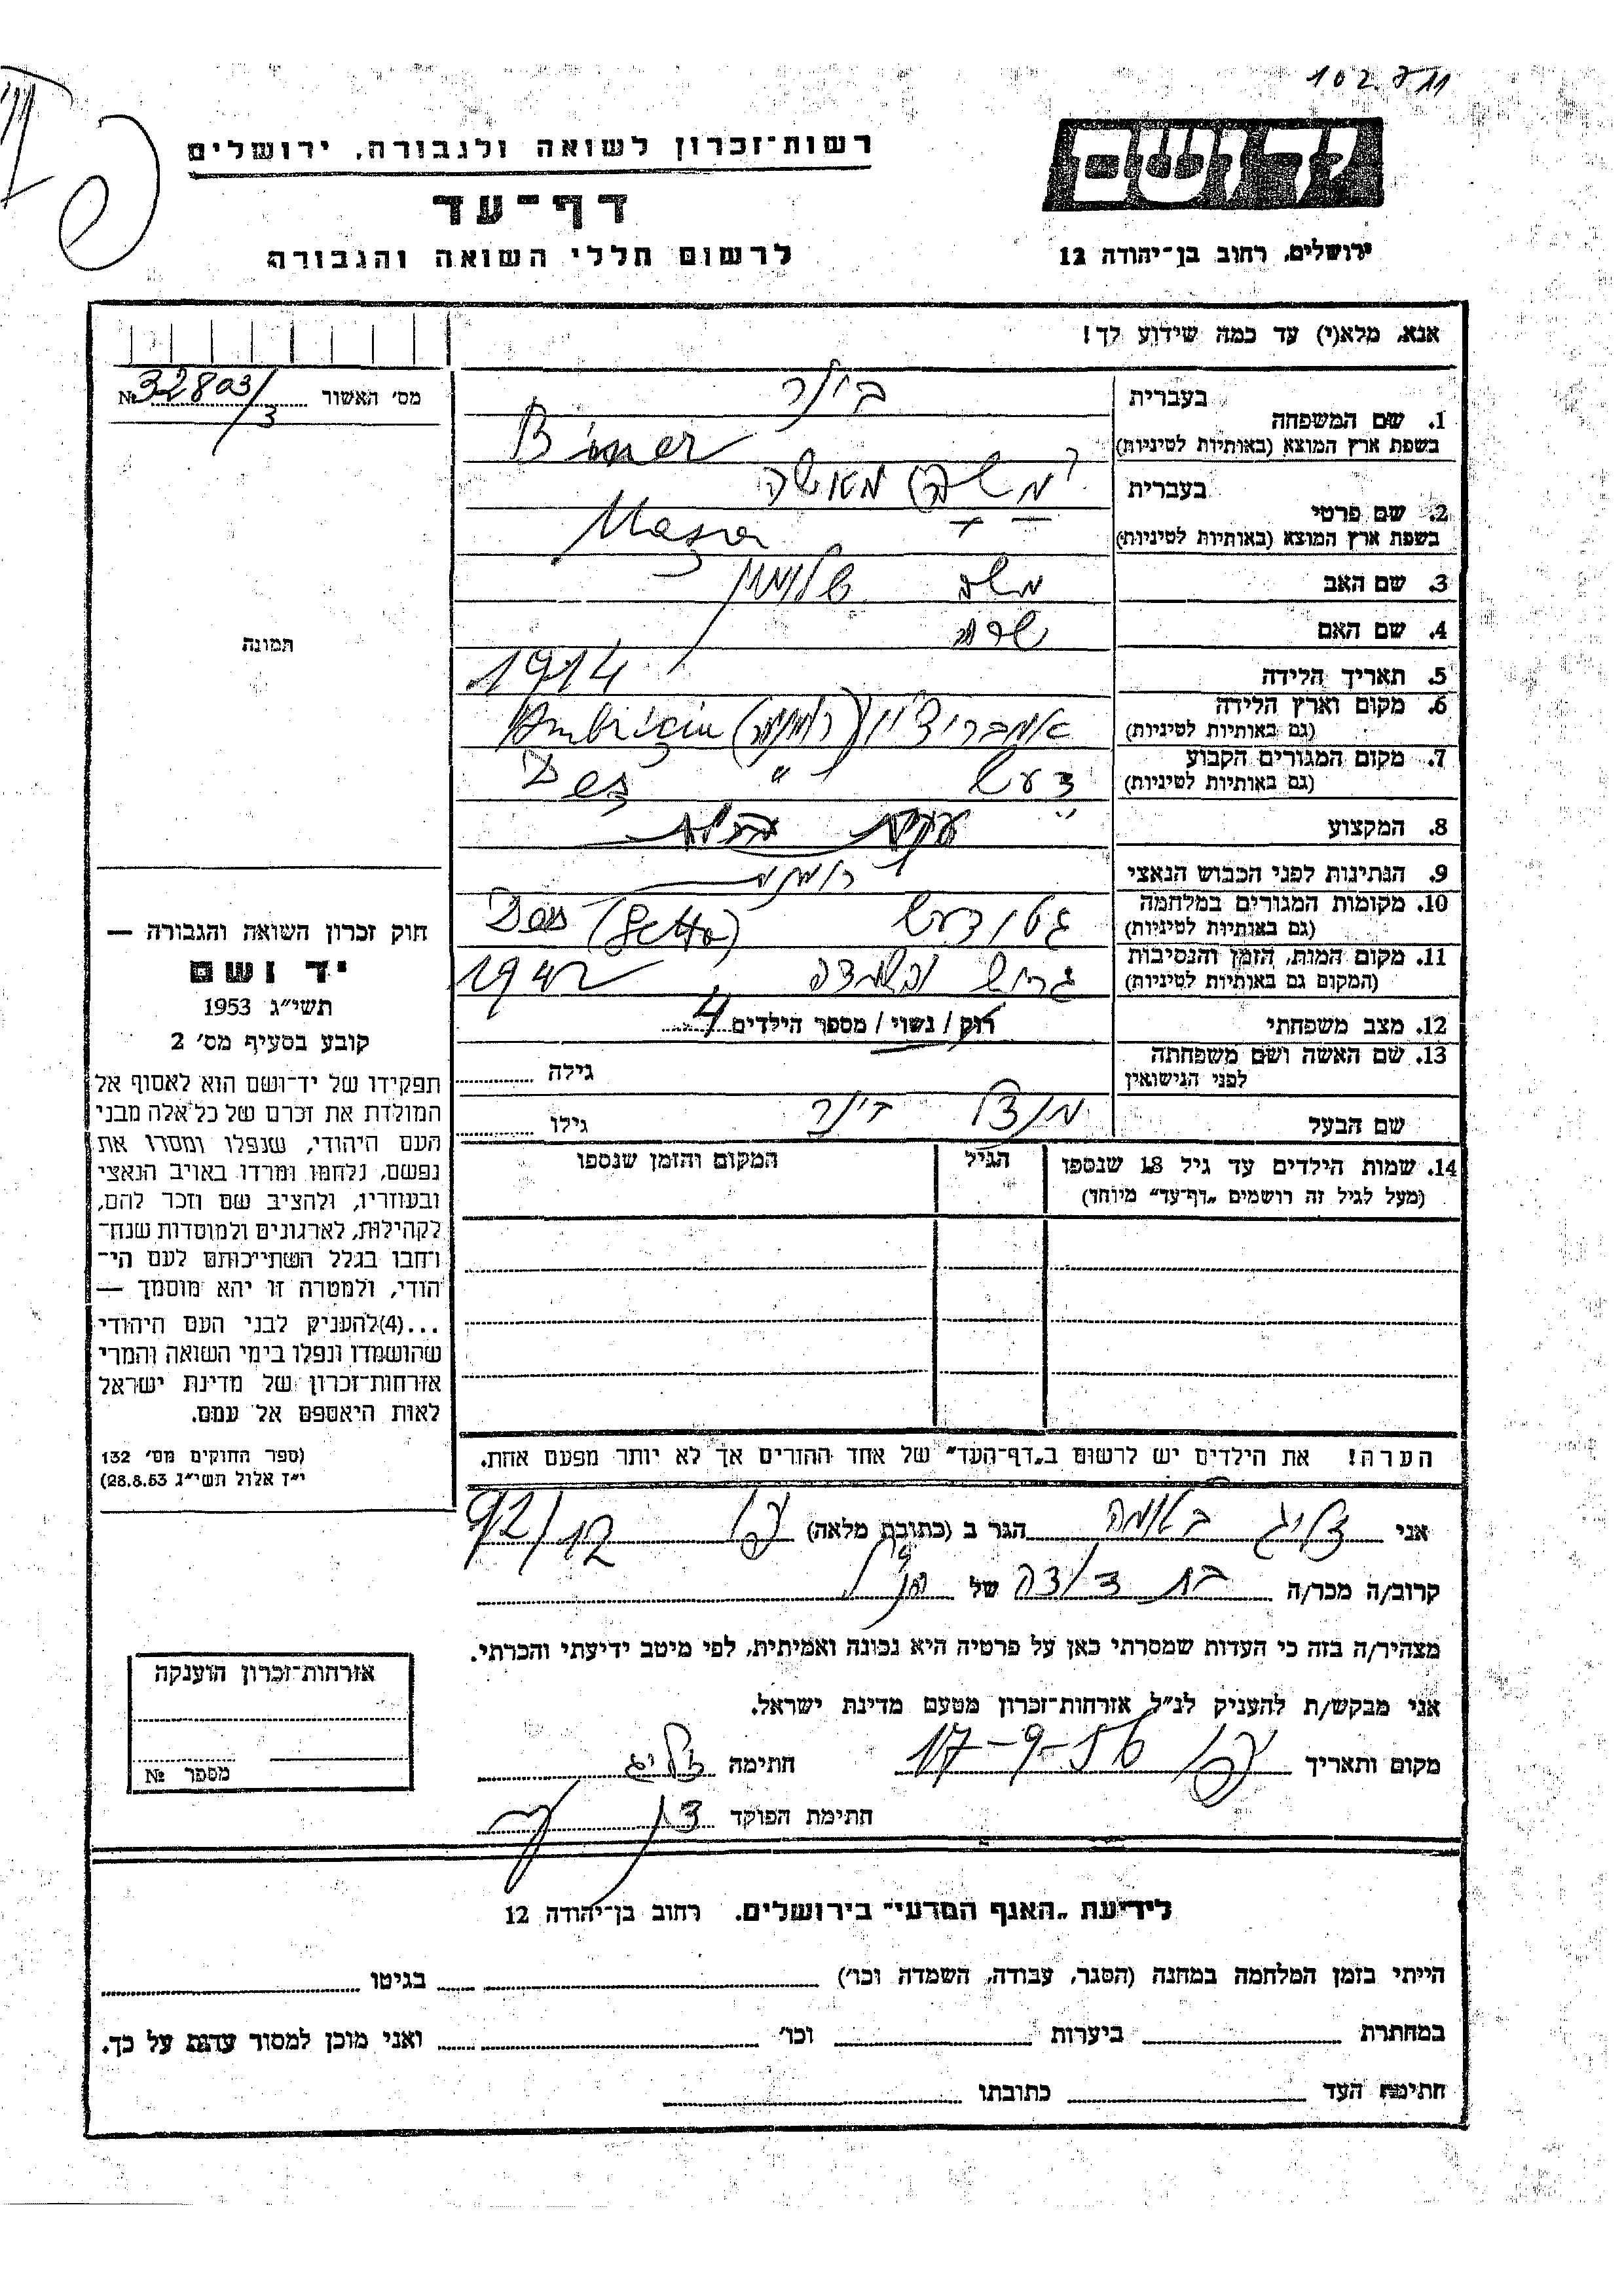 102 711
רשות־זכרון לשואה ולגבורה, ירושלים
דף־עד
לרשום חללי השואה והגבורה
יד ושם
ירושלים, רחוב בן־יהודה 12
אנא, מלא(י) עד כמה שידוע לך!
מס׳ האשור № 32803/3
תמונה
חוק זכרון השואה והגבורה —
יד ושם
תשי״ג 1953
קובע בסעיף מס׳ 2
תפקידו של יד־ושם הוא לאסוף אל
המולדת את זכרם של כל אלה מבני
העם היהודי, שנפלו ומסרו את
נפשם, נלחמו ומרדו באויב הנאצי
ובעוזריו, ולהציב שם וזכר להם,
לקהילות, לארגונים ולמוסדות שנח־
רחבו בגלל השתייכותם לעם הי־
הודי, ולמטרה זו יהא מוסמך —
...(4)להעניק לבני העם היהודי
שהושמדו ונפלו בימי השואה והמרי
אזרחות־זכרון של מדינת ישראל
לאות היאספם אל עמם.
(ספר החוקים מס׳ 132
י״ז אלול תשי״ג 28.8.53)
1. שם המשפחה בעברית
בשפת ארץ המוצא (באותיות לטיניות) Biner
2. שם פרטי בעברית מאשה
בשפת ארץ המוצא (באותיות לטיניות) Masza
3. שם האב משה
4. שם האם שרה
5. תאריך הלידה 1914
6. מקום וארץ הלידה
(גם באותיות לטיניות)
7. מקום המגורים הקבוע דעש " Des
(גם באותיות לטיניות)
8. המקצוע עקרת בית
9. הנתינות לפני הכבוש הנאצי
10. מקומות המגורים במלחמה גטו דעש Des (Getto)
(גם באותיות לטיניות)
11. מקום המות, הזמן והנסיבות 1942
(המקום גם באותיות לטיניות)
12. מצב משפחתי רוק / נשוי / מספר הילדים 4
13. שם האשה ושם משפחתה
לפני הנישואין גילה
שם הבעל גילו
14. שמות הילדים עד גיל 18 שנספו הגיל המקום והזמן שנספו
(מעל לגיל זה רושמים „דף־עד״ מיוחד)
הערה! את הילדים יש לרשום ב„דף־העד״ של אחד ההורים אך לא יותר מפעם אחת.
אני זליג הגר ב (כתובת מלאה) 92/12
קרוב/ה מכר/ה בת דודה של הנ״ל
מצהיר/ה בזה כי העדות שמסרתי כאן על פרטיה היא נכונה ואמיתית, לפי מיטב ידיעתי והכרתי.
אני מבקש/ת להעניק לנ״ל אזרחות־זכרון מטעם מדינת ישראל.
מקום ותאריך 17-9-56 חתימה זליג
חתימת הפוקד
אזרחות־זכרון הוענקה
מספר №
לידיעת „האגף המדעי״ בירושלים, רחוב בן־יהודה 12
הייתי בזמן המלחמה במחנה (הסגר, עבודה, השמדה וכו׳) בגיטו
במחתרת ביערות וכו׳ ואני מוכן למסור עדות על כך.
חתימת העד כתובתו